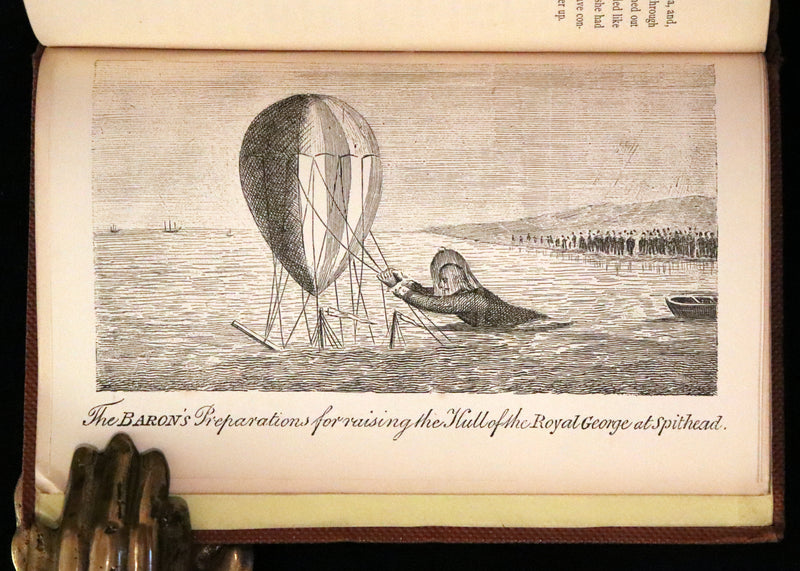 a, and,
hrough
ned out
led like
she had
ive con-
er up.
The BARON'S Preparations for raising the Hull of the Royal George at Spithead.